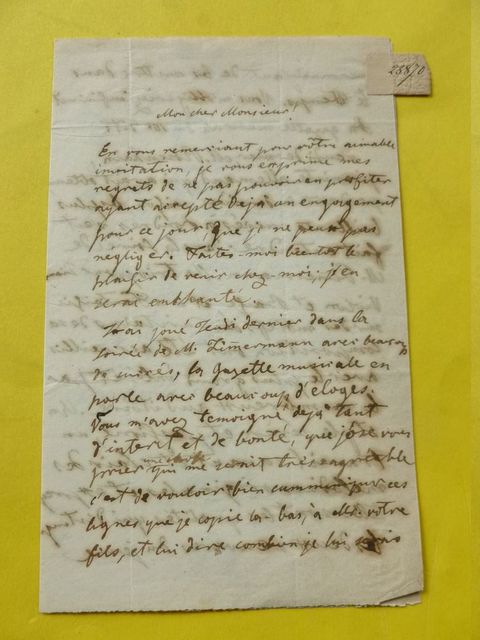 28870
Mon cher Monsieur!
En vous remerciant pour votre aimable
invitation, je vous exprime mes
regrets de ne pas pouvoir en profiter
ayant accepté déjà un engagement
pour ce jour que je ne peux pas
négliger. Faites-moi bientôt le
plaisir de venir chez-moi; j'en
serai enchanté.
J'ai joué Jeudi dernier dans la
soirée de M. Zimermann avec beaucoup
de succès, la Gazette musicale en
parle avec beaucoup d'éloges.
Vous m'avez temoigné dejà tant
d'interet et de bonté, que j'ose vous
prier qui me serait très agréable
c'est de vouloir bien communiquer ces
lignes que je copie là bas, à Mr. votre
fils, et lui dire combien je lui serais